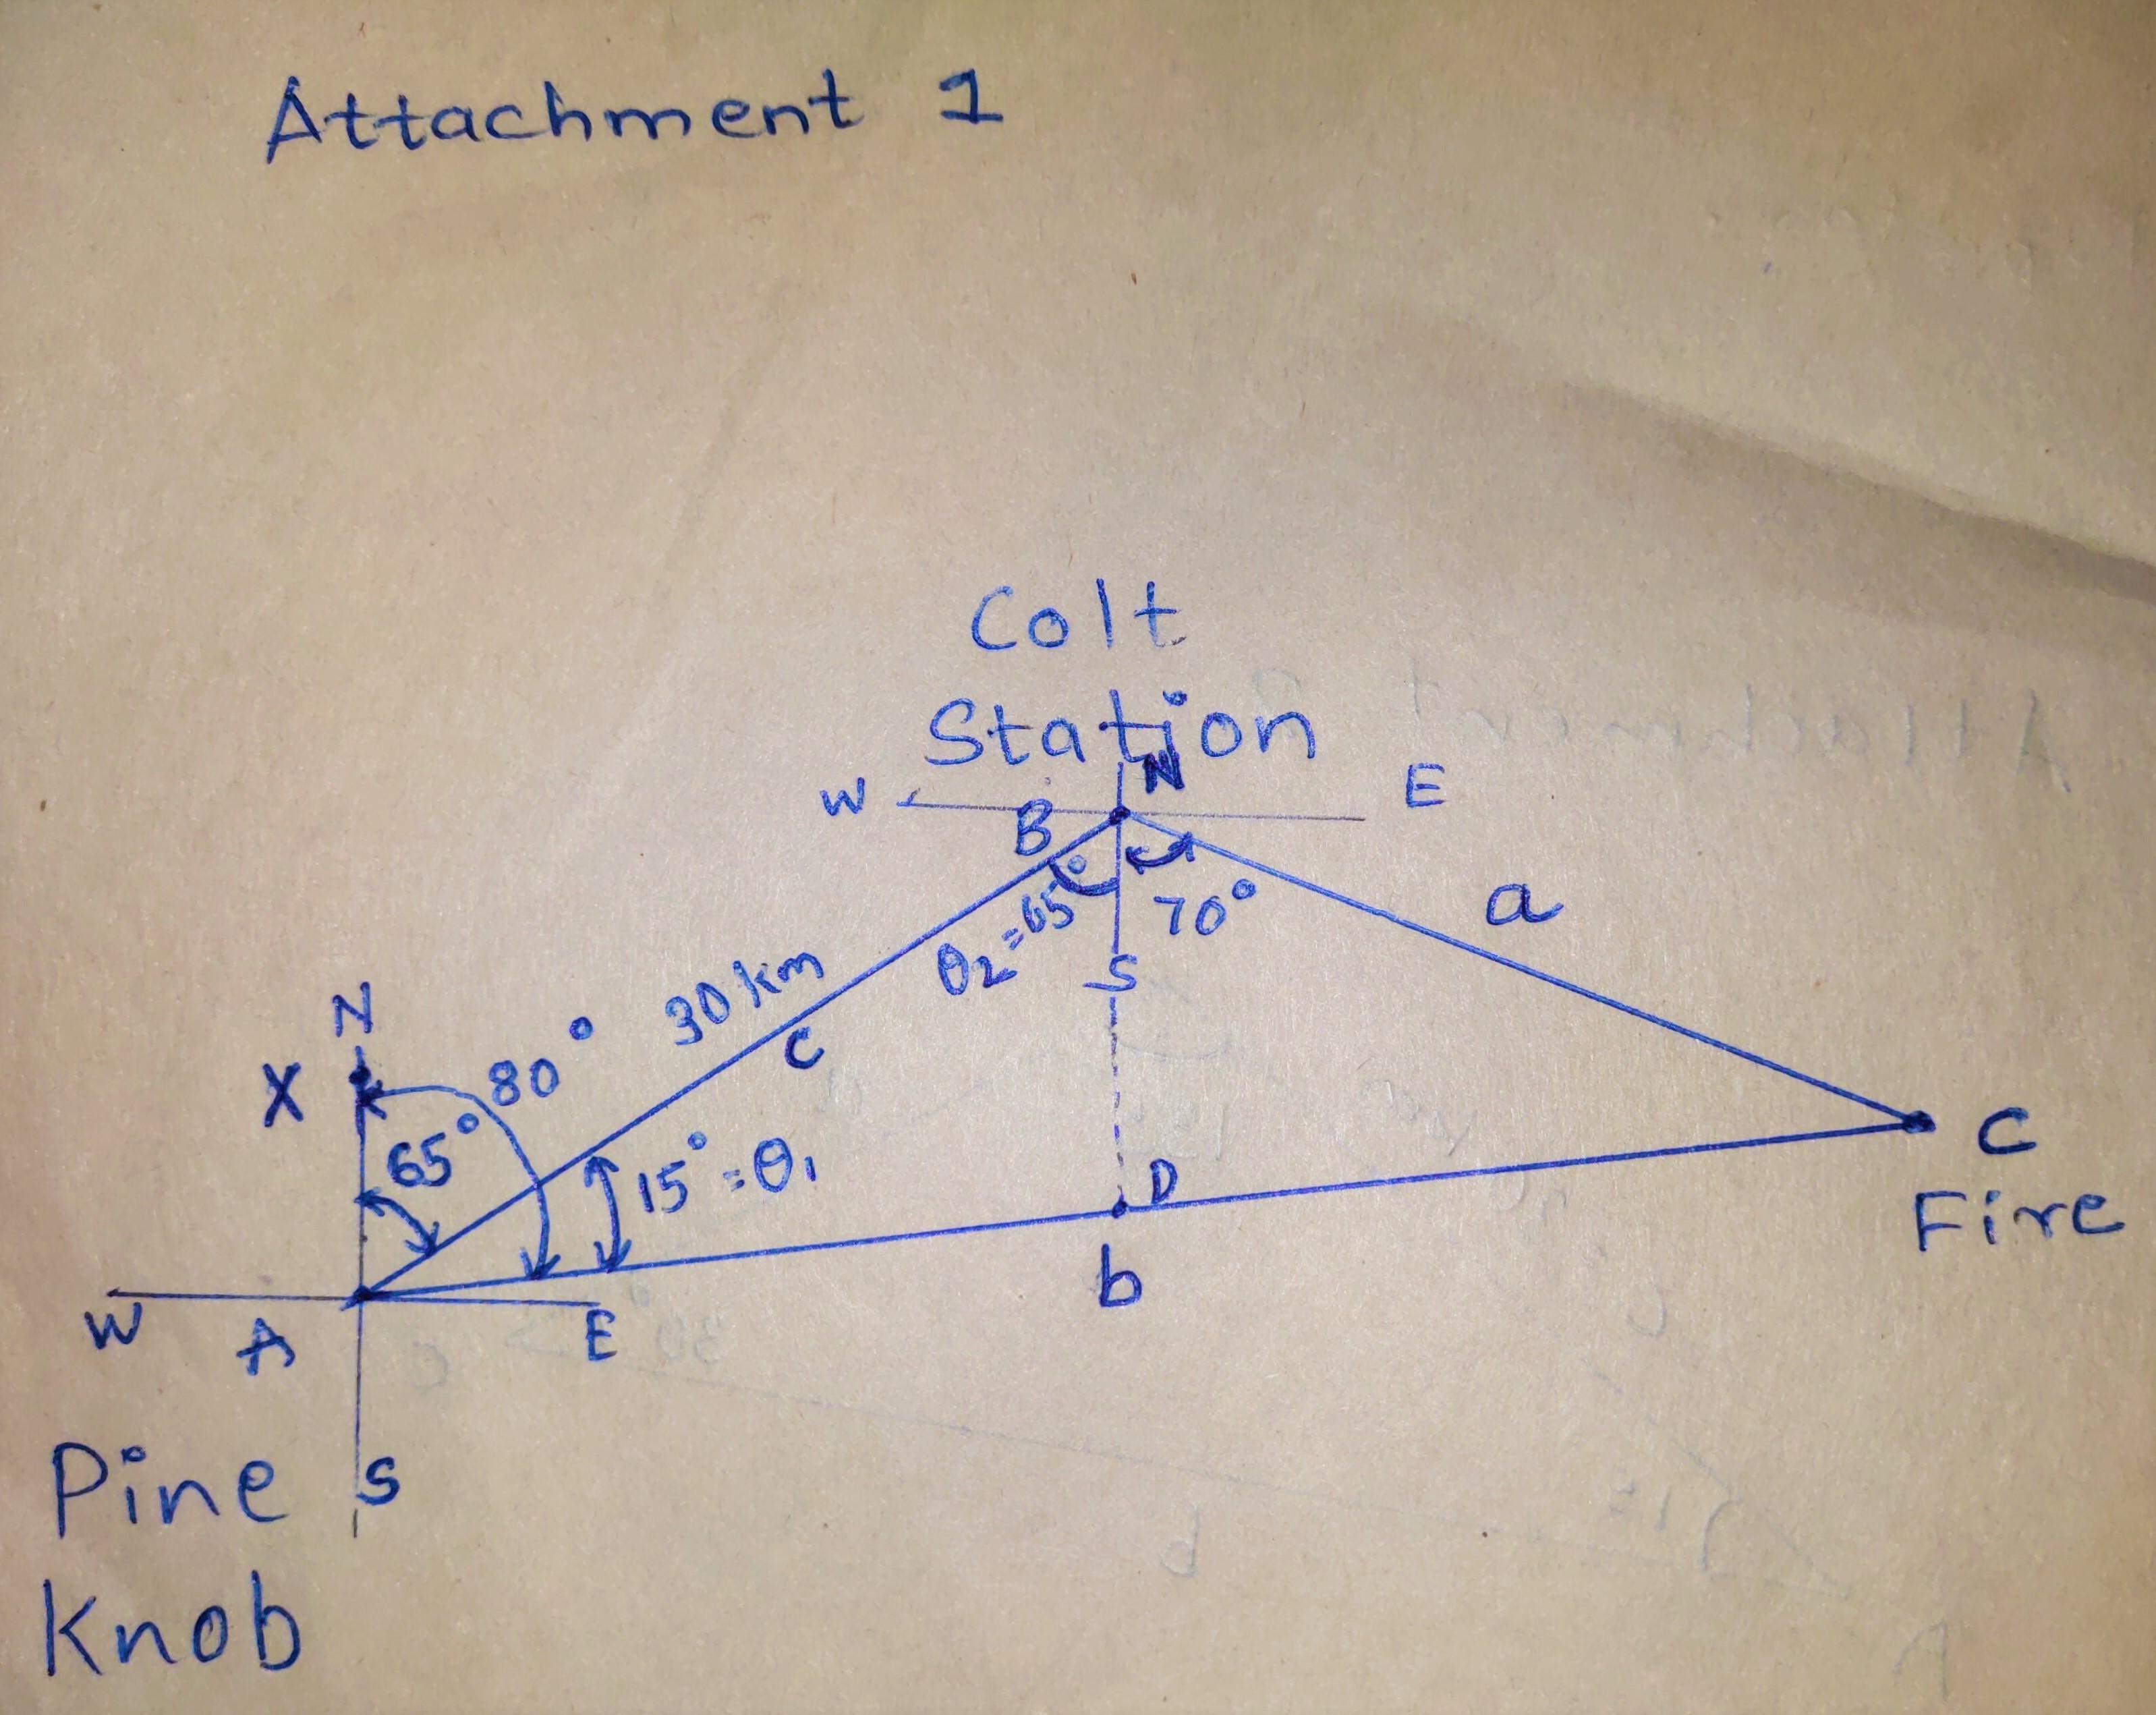 Attachment 1
Colt
Station
N
W
E
B
θ2=65°
70°
a
S
30 km
c
N
X
80°
65°
15°=θ1
D
b
C
Fire
W
A
E
S
Pine
Knob